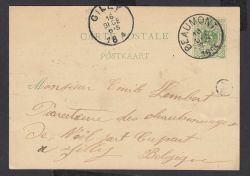 GILLY
BEAUMONT
CARTE POSTALE
POSTKAART
Monsieur Emile Lambert
Directeur des charbonnages
de Noël Sart Culpart
à Gilly
Belgique